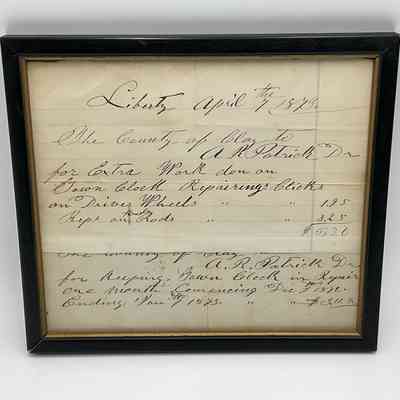 Liberty April 7th 1873
The County of Clay to
A R Patrick Dr
for Extra Work don on
Town Clock Repairering Clicks
on Driver Wheels " " 1.95
Rept on Rods " " 3.25
$5.20
The County of Clay
A. R. Patrick Dr
for Keeping Town Clock in Repair
one Month Comencing Dec 1872
Ending Jan 1873 " "